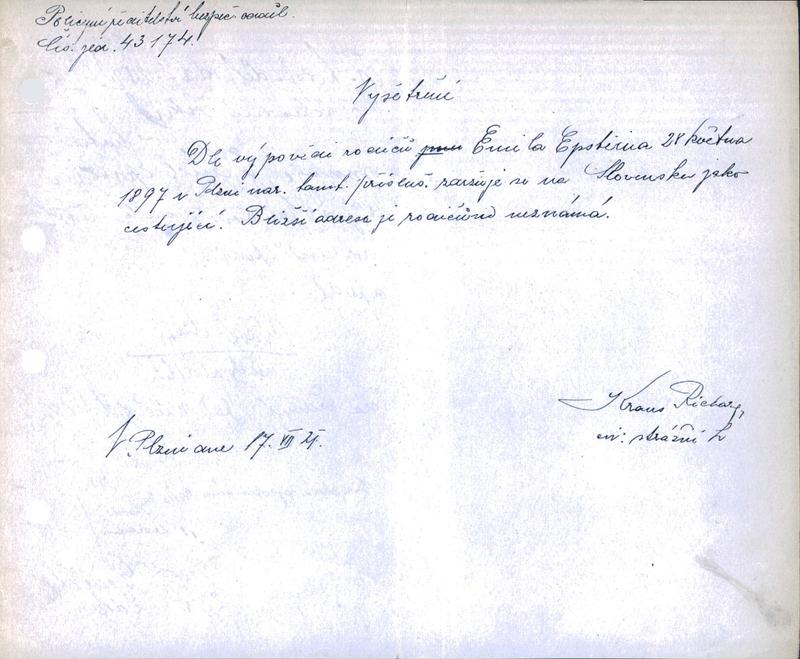 Policejní ředitelství bezpeč. odděl.
Čís. jed. 43174.
Vyšetření
Dle výpovědi rodičů Emila Epsteina 28 května
1897 v Plzni nar. tamt. přísluš. zdržuje se na Slovensku jako
cestující. Bližší adresa je rodičům neznámá.
V Plzni dne 17. VII 21.
Kraus Richard,
civ: strážní